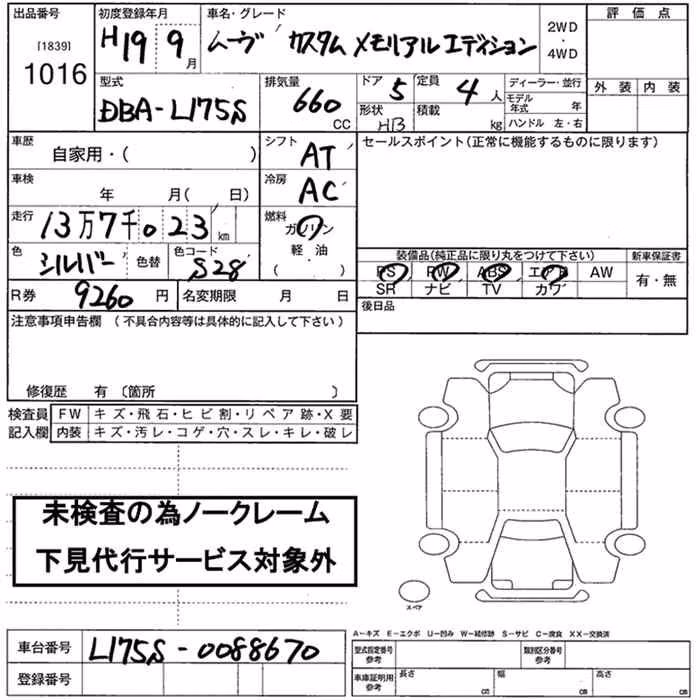 出品番号 初度登録年月 車名・グレード 評価点
[1839] 1016 H19 9月 ムーヴ カスタム メモリアル エディション 2WD・4WD
外装 内装
型式 排気量 ドア 定員 ディーラー・並行
DBA-L175S 660CC 5 4人 モデル年式 年
形状 HB 積載 kg ハンドル 左・右
車歴 シフト セールスポイント(正常に機能するものに限ります)
自家用・( ) AT
車検 冷房
年 月( 日) AC
走行 13万7千023km 燃料 ガソリン
軽・油
( )
色 シルバー 色替 色コード S28
装備品(純正品に限り丸をつけて下さい) 新車保証書
PS PW ABS エアB AW 有・無
SR ナビ TV カワ
R券 9260円 名変期限 月 日 後日品
注意事項申告欄(不具合内容等は具体的に記入して下さい)
修復歴 有〔箇所 〕
検査員 FW キズ・飛石・ヒビ割・リペア跡・X要
記入欄 内装 キズ・汚レ・コゲ・穴・スレ・キレ・破レ
未検査の為ノークレーム
下見代行サービス対象外
スペア
A-キズ E-エクボ U-凹み W-補修跡 S-サビ C-腐食 XX-交換済
車台番号 L175S-0088670 型式指定番号 参考 類別区分番号 参考
登録番号 車庫証明用 参考 長さ cm 幅 cm 高さ cm